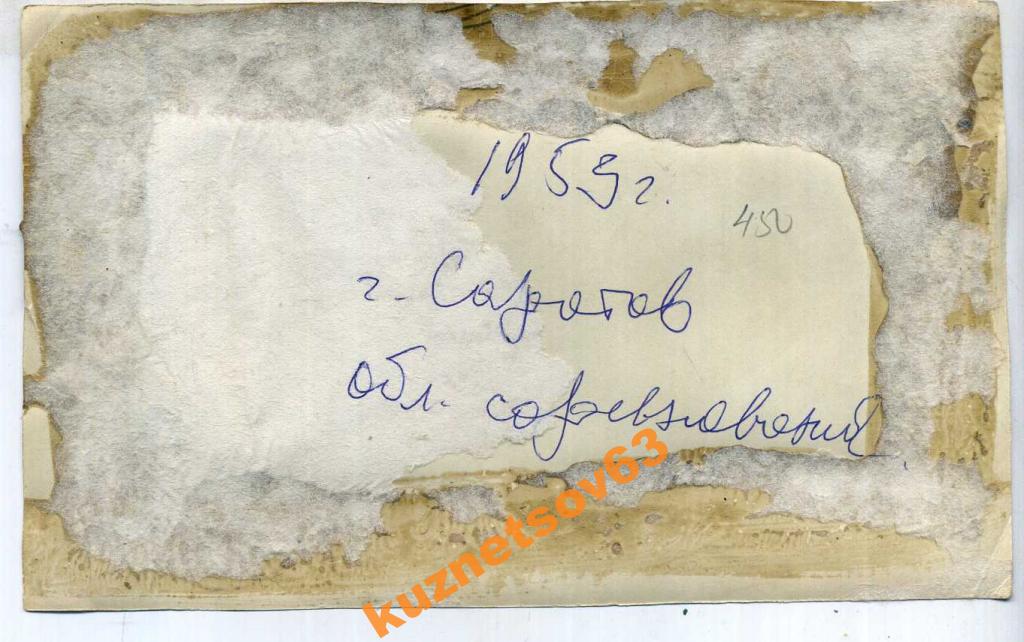 1953 г.
450
г. Саратов
обл. соревнований
kuznetsov63